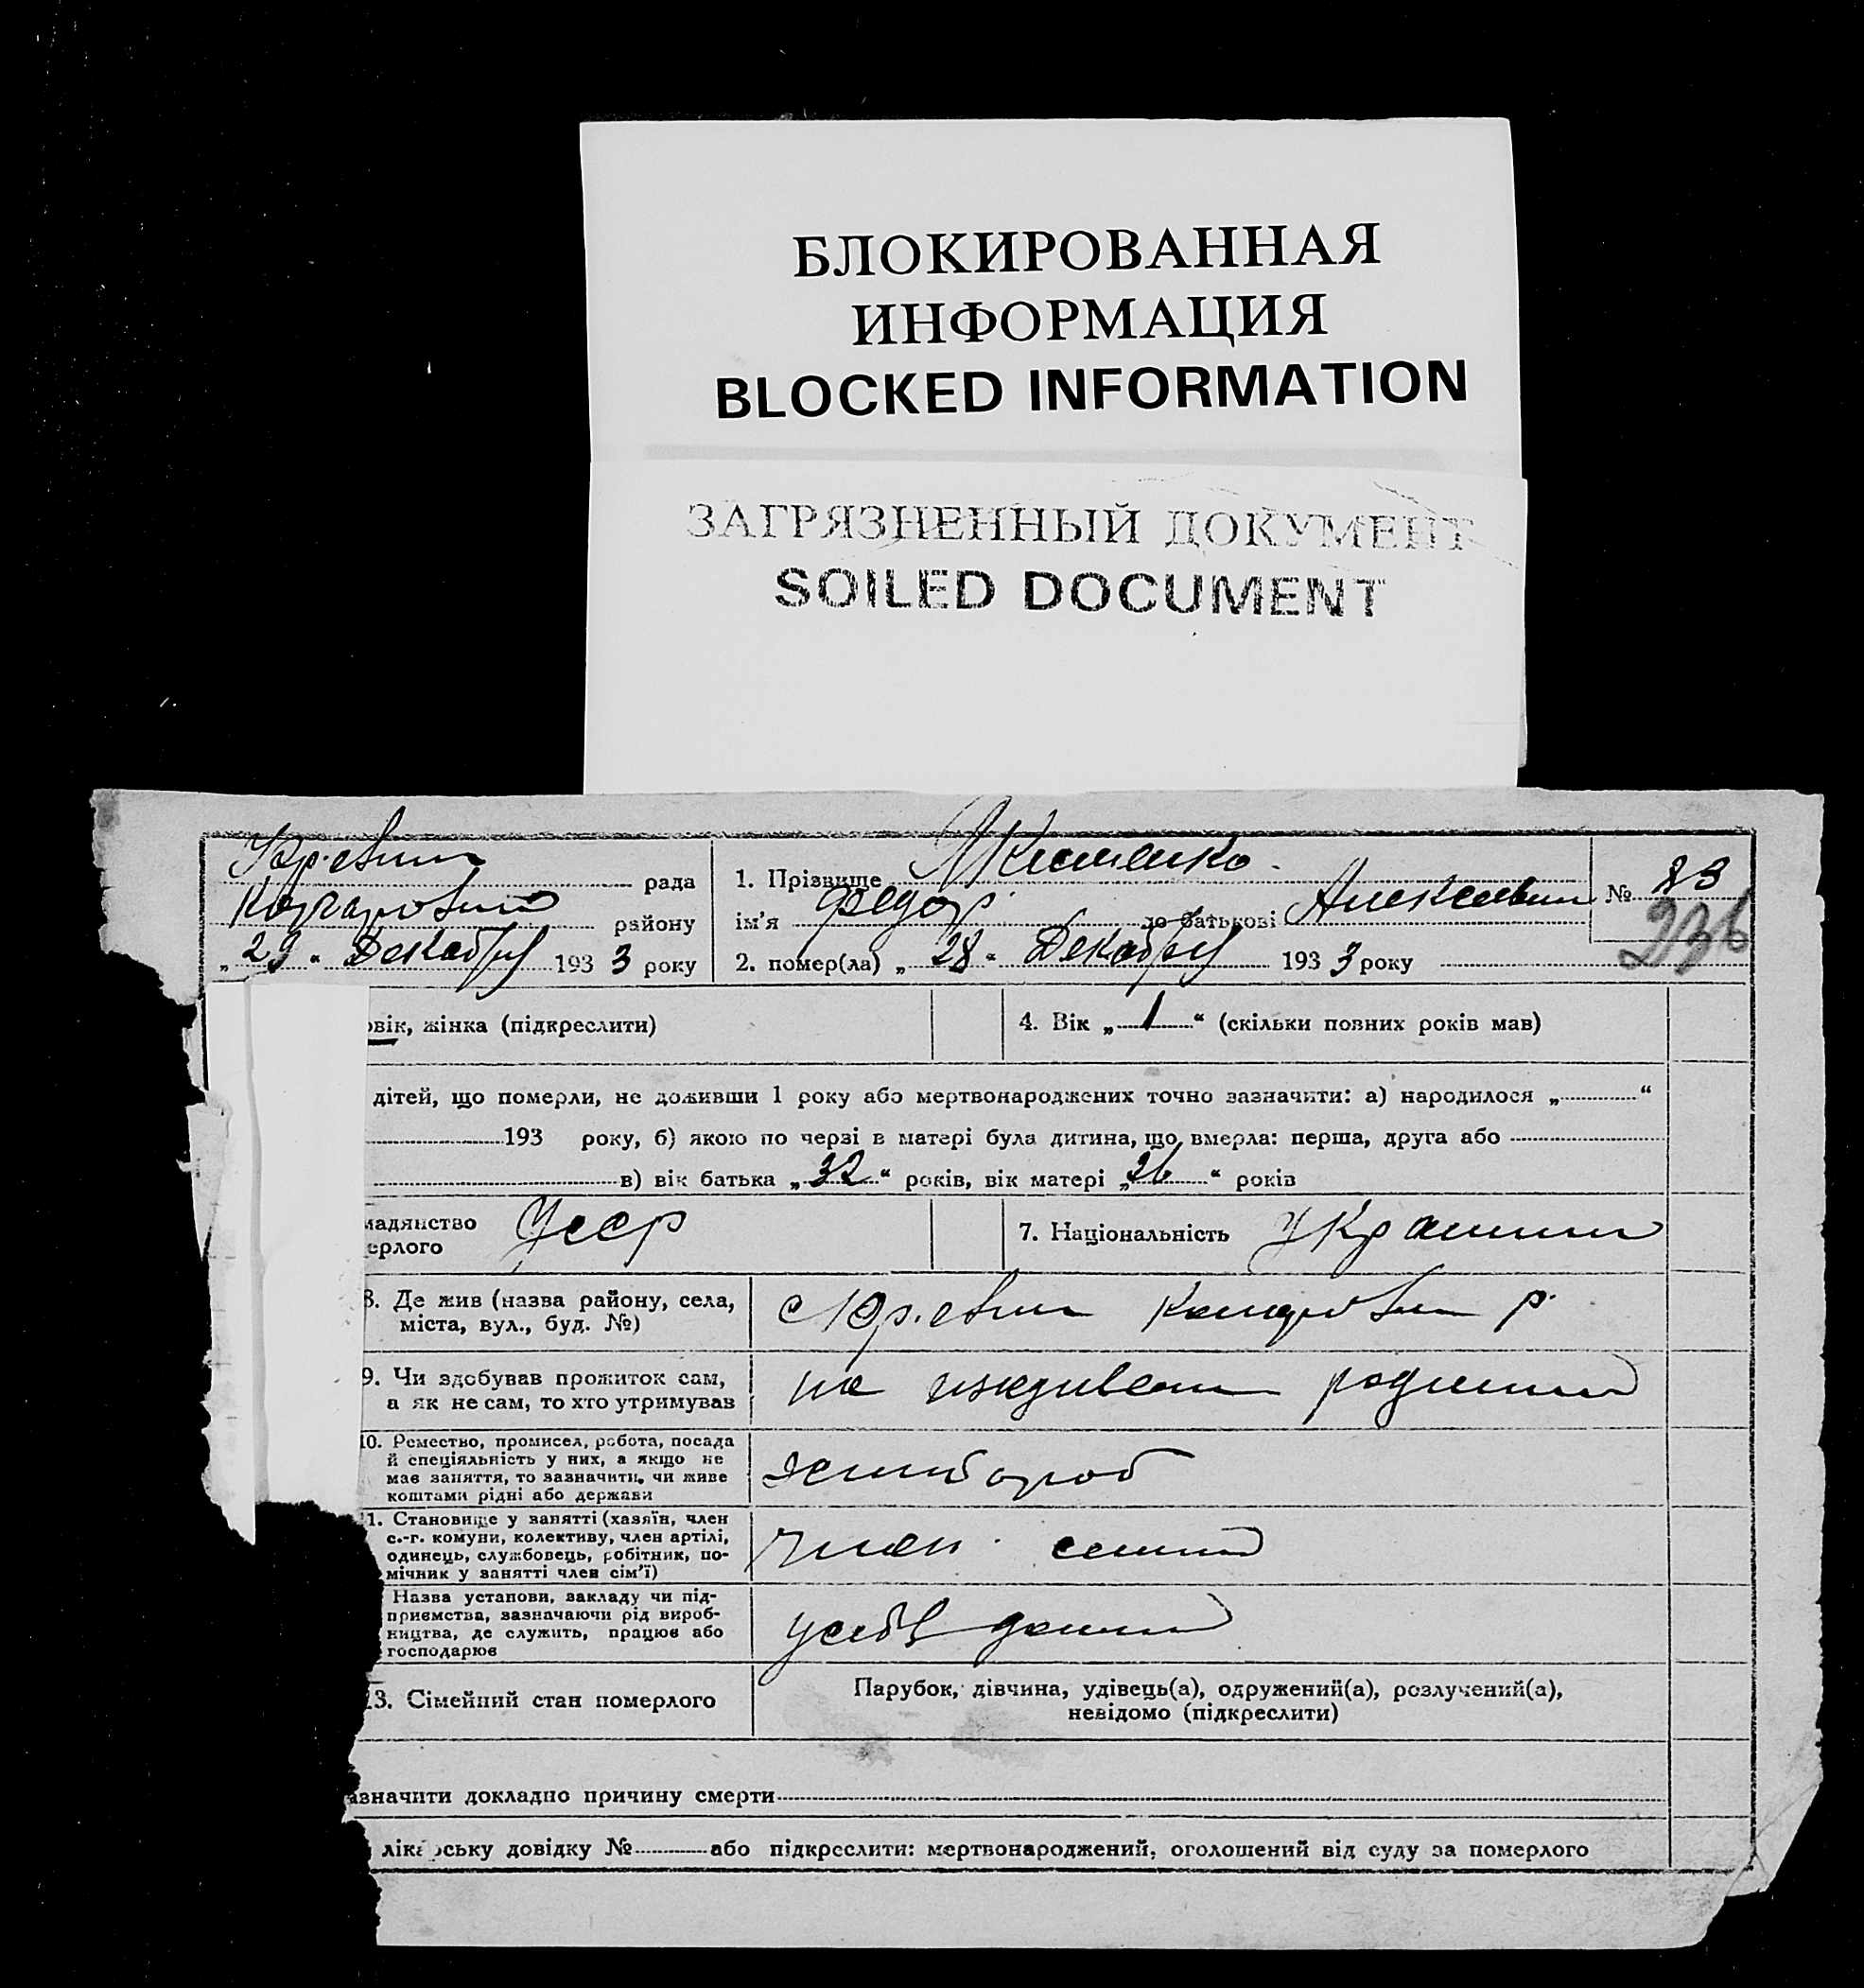 БЛОКИРОВАННАЯ
ИНФОРМАЦИЯ
BLOCKED INFORMATION
ЗАГРЯЗНЕННЫЙ ДОКУМЕНТ
SOILED DOCUMENT
рада
району
„29“ Декабру 1933 року
1. Прізвище
ім’я Федор по батькові Алексеевич
2. помер(ла) „28“ Декабру 1933 року
№ 83
236
овік, жінка (підкреслити)
4. Вік „1“ (скільки повних років мав)
дітей, що померли, не доживши 1 року або мертвонароджених точно зазначити: а) народилося „ “
193 року, б) якою по черзі в матері була дитина, що вмерла: перша, друга або
в) вік батька „32“ років, вік матері „26“ років
мадянство
ерлого
Усср
7. Національність Украинец
8. Де жив (назва району, села,
міста, вул., буд. №)
р.
9. Чи здобував прожиток сам,
а як не сам, то хто утримував
на иждивении родителей
10. Ремество, промисел, робота, посада
й спеціяльність у них, а якщо не
має заняття, то зазначити, чи живе
коштами рідні або держави
хлебороб
11. Становище у занятті (хазяїн, член
с.-г. комуни, колективу, член артілі,
одинець, службовець, робітник, по-
мічник у занятті член сім’ї)
член семьи
Назва установи, закладу чи під-
приємства, зазначаючи рід вироб-
ництва, де служить, працює або
господарює
13. Сімейний стан померлого
Парубок, дівчина, удівець(а), одружений(а), розлучений(а),
невідомо (підкреслити)
азначити докладно причину смерти
лікарську довідку № або підкреслити: мертвонароджений, оголошений від суду за померлого